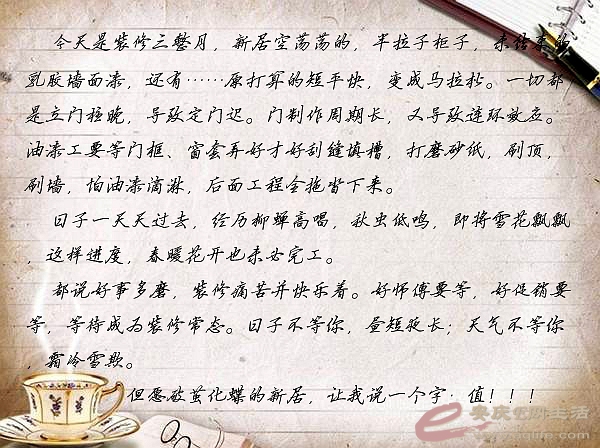 今天是装修三整月，新居空荡荡的，半拉子柜子，未结束的
乳胶墙面漆，还有……原打算的短平快，变成马拉松。一切都
是立门框晚，导致定门迟。门制作周期长，又导致连环效应。
油漆工要等门框、窗套弄好才好刮缝填槽，打磨砂纸，刷顶，
刷墙，怕油漆滴淋，后面工程全拖沓下来。
日子一天天过去，经历柳蝉高唱，秋虫低鸣，即将雪花飘飘
，这样进度，春暖花开也未必完工。
都说好事多磨，装修痛苦并快乐着。好师傅要等，好促销要
等，等待成为装修常态。日子不等你，昼短夜长；天气不等你
，霜冷雪欺。
但愿破茧化蝶的新居，让我说一个字：值！！！
安庆E网生活